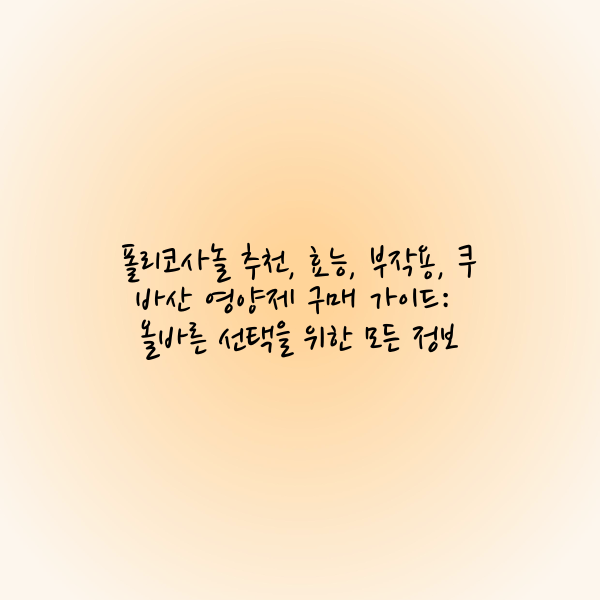 폴리코사놀 추천, 효능, 부작용, 쿠
바산 영양제 구매 가이드:
올바른 선택을 위한 모든 정보